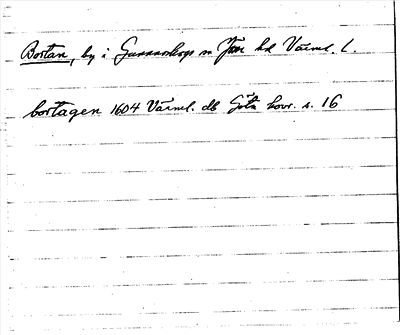 Bortan, by i Gunnarskogs sn Jösse hd Värml. l.
bortagen 1604 Värml. db Göta hovr. s. 16